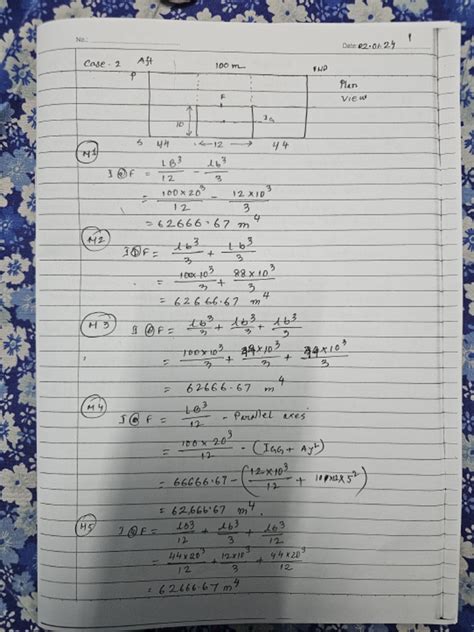 No.:
Date: 02.01.24
1
Case - 2 Aft 100 m FWD
P
Plan
View
F
10 IG
S 44 ←12→ 44
M1
I @ F = LB³/12 - lb³/3
= 100×20³/12 - 12×10³/3
= 62666.67 m⁴
M2
I @ F = lb³/3 + lb³/3
= 100×10³/3 + 88×10³/3
= 62666.67 m⁴
M3
I @ F = lb³/3 + lb³/3 + lb³/3
= 100×10³/3 + 44×10³/3 + 44×10³/3
= 62666.67 m⁴
M4
I @ F = LB³/12 - Parallel axes
= 100×20³/12 - (IGG + Ay²)
= 66666.67 - (12×10³/12 + 10×12×5²)
= 62,666.67 m⁴.
M5
I @ F = lB³/12 + lb³/3 + lB³/12
= 44×20³/12 + 12×10³/3 + 44×20³/12
= 62666.67 m⁴